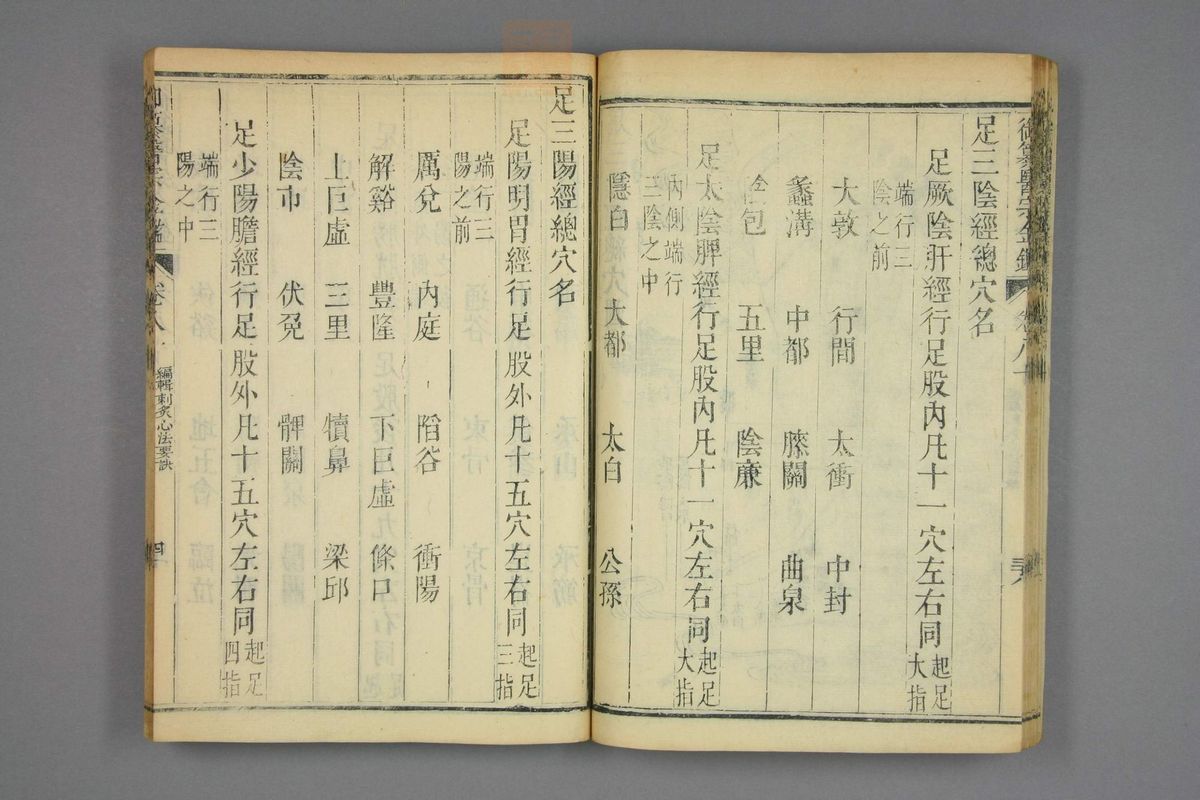 足三陰經總穴名
足厥陰肝經行足股內凡十一穴左右同起足大指
端行三陰之前
大敦 行間 太衝 中封
蠡溝 中都 膝關 曲泉
陰包 五里 陰廉
足太陰脾經行足股內凡十一穴左右同起足大指
內側端行三陰之中
隱白 大都 太白 公孫
足三陽經總穴名
足陽明胃經行足股外凡十五穴左右同起足三指
端行三陽之前
厲兌 內庭 陷谷 衝陽
解谿 豐隆 下巨虛 條口
上巨虛 三里 犢鼻 梁邱
陰市 伏兔 髀關
足少陽膽經行足股外凡十五穴左右同起足四指
端行三陽之中
御纂醫宗金鑑 卷八 編輯刺灸心法要訣